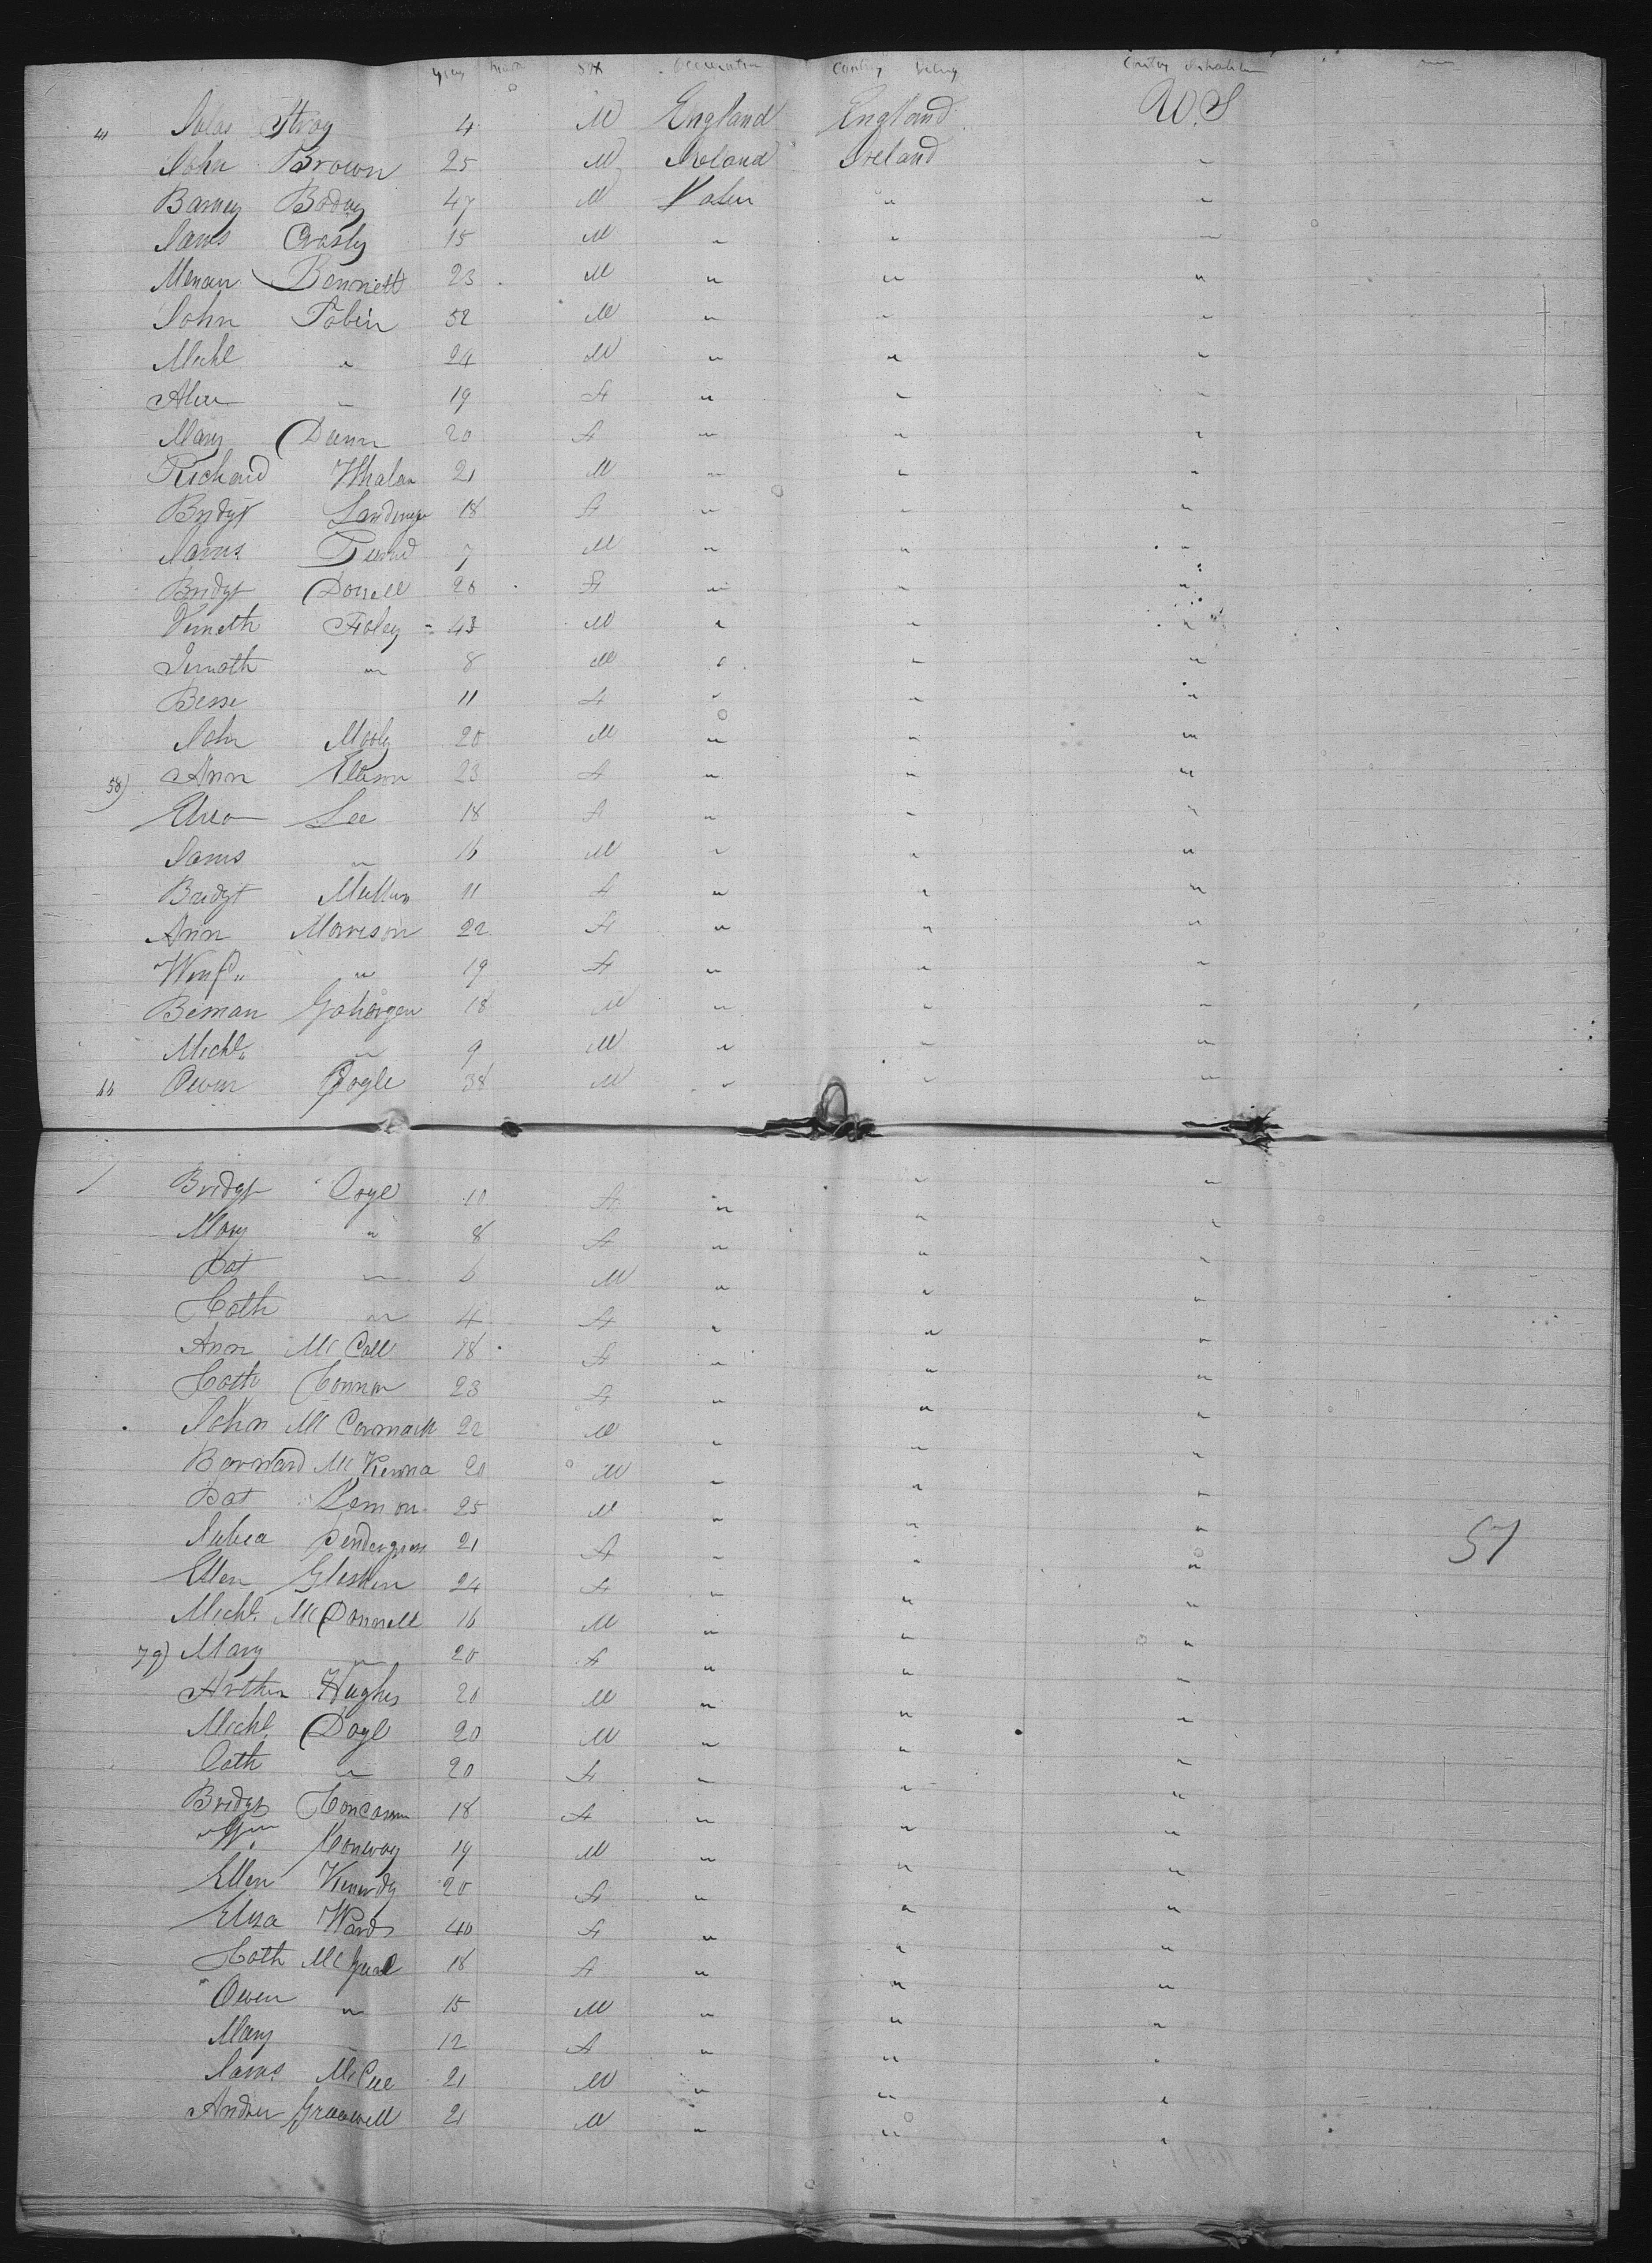 years month sex Occupation Country belong Country inhabit
" Silas Stray 4 M England England U.S
John Brown 25 M Ireland Ireland "
Barney Boday 47 M Laber " "
James Crosby 15 M " " "
Bennett 23 M " " "
John Tobin 52 M " " "
Michl " 24 M " " "
" 19 F " " "
Mary Dunn 20 F " " "
Richard Whalan 21 M " " "
Bridgt 18 F " " "
James 7 M " " "
Bridgt 20 F " " "
Timoth Foley 43 M " " "
Timoth " 8 M " " "
Besse 11 F " " "
John 20 M " " "
58) Ann Ellison 23 F " " "
Lee 18 F " " "
James " 16 M " " "
Bridgt Mullen 11 F " " "
Ann Morreson 22 F " " "
Winf. " 19 F " " "
Beman 18 M " " "
Michl. " 9 M " " "
" Owen Dogle 38 M " " "
Bridgt Dogl 10 F " " "
Mary " 8 F " " "
Pat " 6 M " " "
Cath " 4 F " " "
Ann McCall 18 F " " "
Cath Connor 23 F " " "
John McCormack 22 M " " "
Barnard McKenna 20 M " " "
Pat Lemon 25 M " " "
Pendergrass 21 F " " "
Ellen Gleshen 24 F " " "
Michl. McDonnell 16 M " " "
79) Mary " 20 F " " "
Arther Hughs 20 M " " "
Michl. Dogl 20 M " " "
Cath " 20 F " " "
Bridgt 18 F " " "
Wm. Conway 19 M " " "
Ellen Kenerdy 20 F " " "
Eliza Wards 40 F " " "
Cath 18 F " " "
Owen " 15 M " " "
Mary 12 F " " "
James McCue 21 M " " "
Andrew 21 M " " "
57